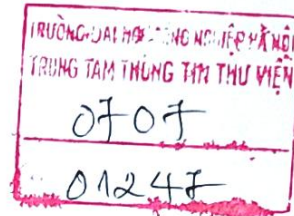 TRƯỜNG ĐẠI HỌC CÔNG NGHIỆP HÀ NỘI
TRUNG TÂM THÔNG TIN THƯ VIỆN
0707
01247